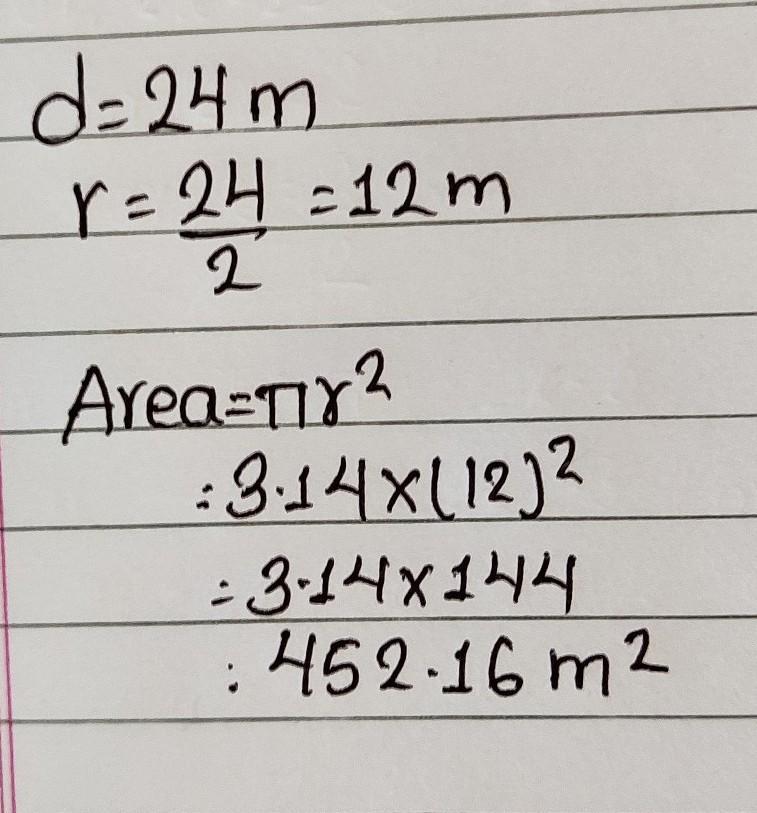 d=24 m
r = 24/2 = 12 m
Area=πr²
=3.14×(12)²
=3.14×144
: 452.16 m²